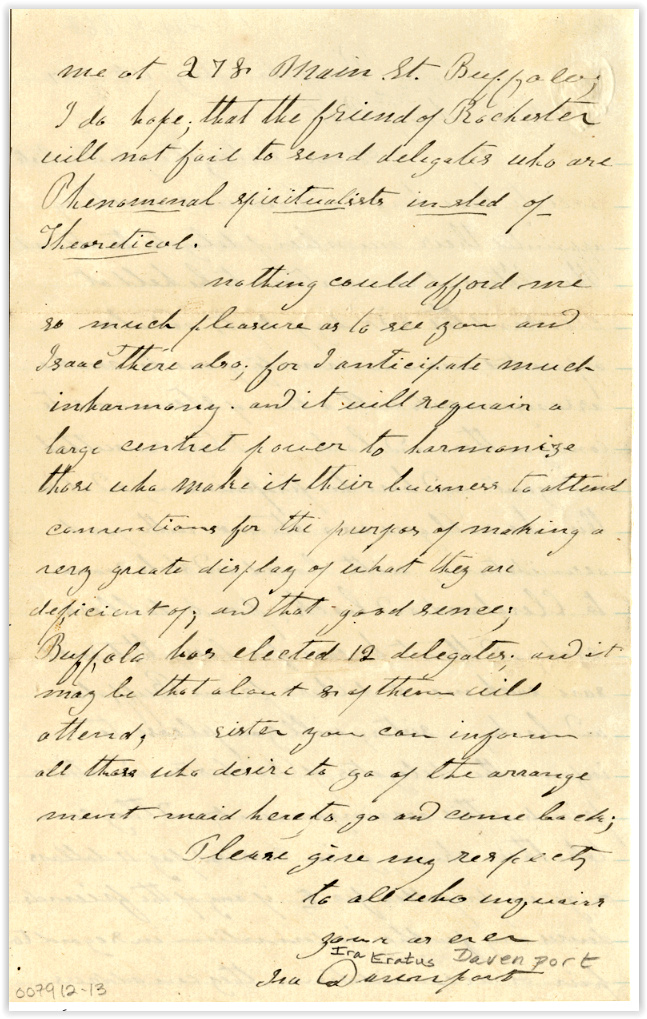 me at 278 Main St. Buffalo;
I do hope; that the friend of Rochester
will not fail to send delegates who are
Phenomenal spiritualists insted of
Theoretical.
nothing could afford me
so much pleasure as to see you and
Isaac there also; for I anticipate much
inharmony. and it will requair a
large centrel power to harmonize
those who make it their buisness to attend
conventions for the purpos of making a
very greate display of what they are
deficient of; and that good sence;
Buffalo has elected 12 delegates; and it
may be that about 8 of them will
attend; sister you can inform
all thoes who desire to go of the arrange
ment maid here to go and come back;
Please give my respects
to all who inquires
your as ever
Ira Eratus Davenport
Ira Davenport
007912-13